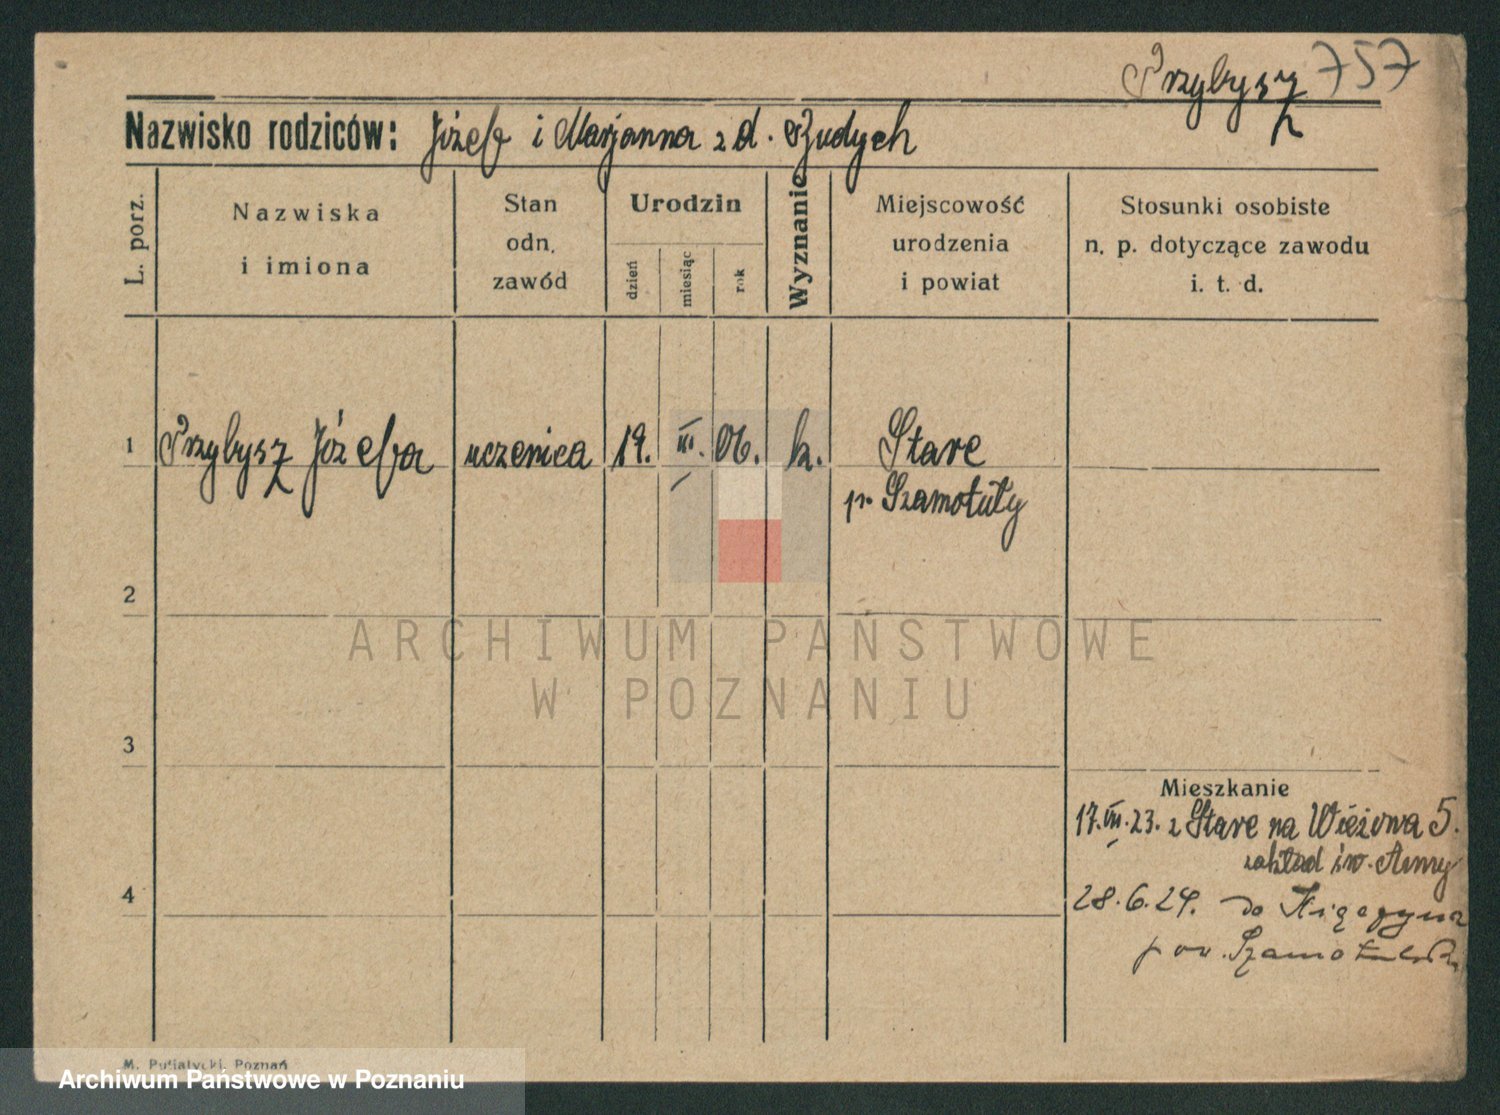 Przybysz 757
Nazwisko rodziców: Józef i Marjanna z d. Rudych
L. porz.
Nazwiska
i imiona
Stan
odn.
zawód
Urodzin
dzień
miesiąc
rok
Wyznanie
Miejscowość
urodzenia
i powiat
Stosunki osobiste
n. p. dotyczące zawodu
i. t. d.
1 Przybysz Józefa uczenica 19. III. 06. k. Stare
p. Szamotuły
2
ARCHIWUM PAŃSTWOWE
W POZNANIU
3
Mieszkanie
17.VII.23. z Stare na Wieżowa 5.
zakład św. Anny
4
28.6.24. do
pow. Szamotulski
M. Putiatycki, Poznań
Archiwum Państwowe w Poznaniu